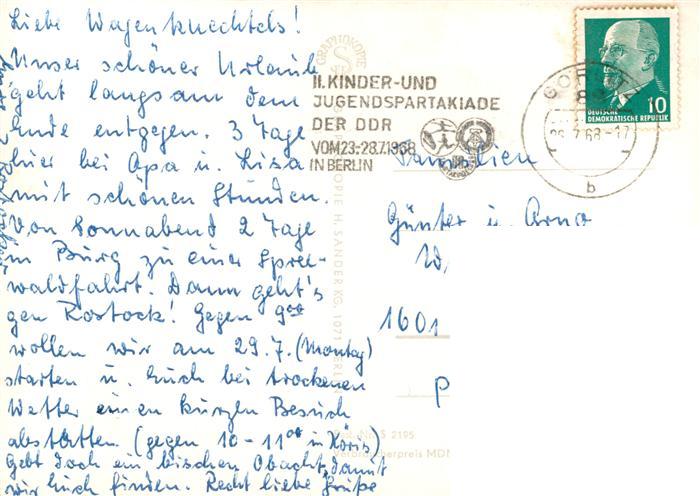 Liebe Wagenknechtels!
Unser schöner Urlaub
geht langsam dem
Ende entgegen. 3 Tage
hier bei Opa u. Lisa
mit schönen Stunden.
Von Sonnabend 2 Tage
in Burg zu einer Spree-
waldfahrt. Dann geht's
gen Rostock! Gegen 9⁰⁰
wollen wir am 29.7. (Montag)
starten u. Euch bei trockenen
Wetter einen kurzen Besuch
abstatten (gegen 10-11⁰⁰ in Köris)
Gebt doch ein bischen Obacht, damit
wir Euch finden. Recht liebe Grüße
II. KINDER-UND
JUGENDSPARTAKIADE
DER DDR
VOM 23.-28.7.1968
IN BERLIN
7.68-17
b
10
DEUTSCHE
DEMOKRATISCHE REPUBLIK
Familien
Günter u. Arno
W
1601
P
GRAPHOKOPIE
H. SANDER KG, 1071 BERLIN
S 2195
Verbraucherpreis MDN